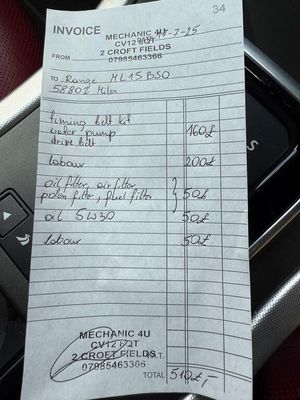 34
INVOICE
MECHANIC 4U
CV12
2 CROFT FIELDS
07985463366
-7-25
FROM
TO Range HL15BSO
58802 Miles
timing belt kit
water pump
drive belt
160£
labour 200£
oil filter, air filter
polen filter, fuel filter
50£
oil 5W30 50£
labour 50£
MECHANIC 4U
CV12
2 CROFT FIELDS V.A.T.
07985463366
TOTAL 510£,-